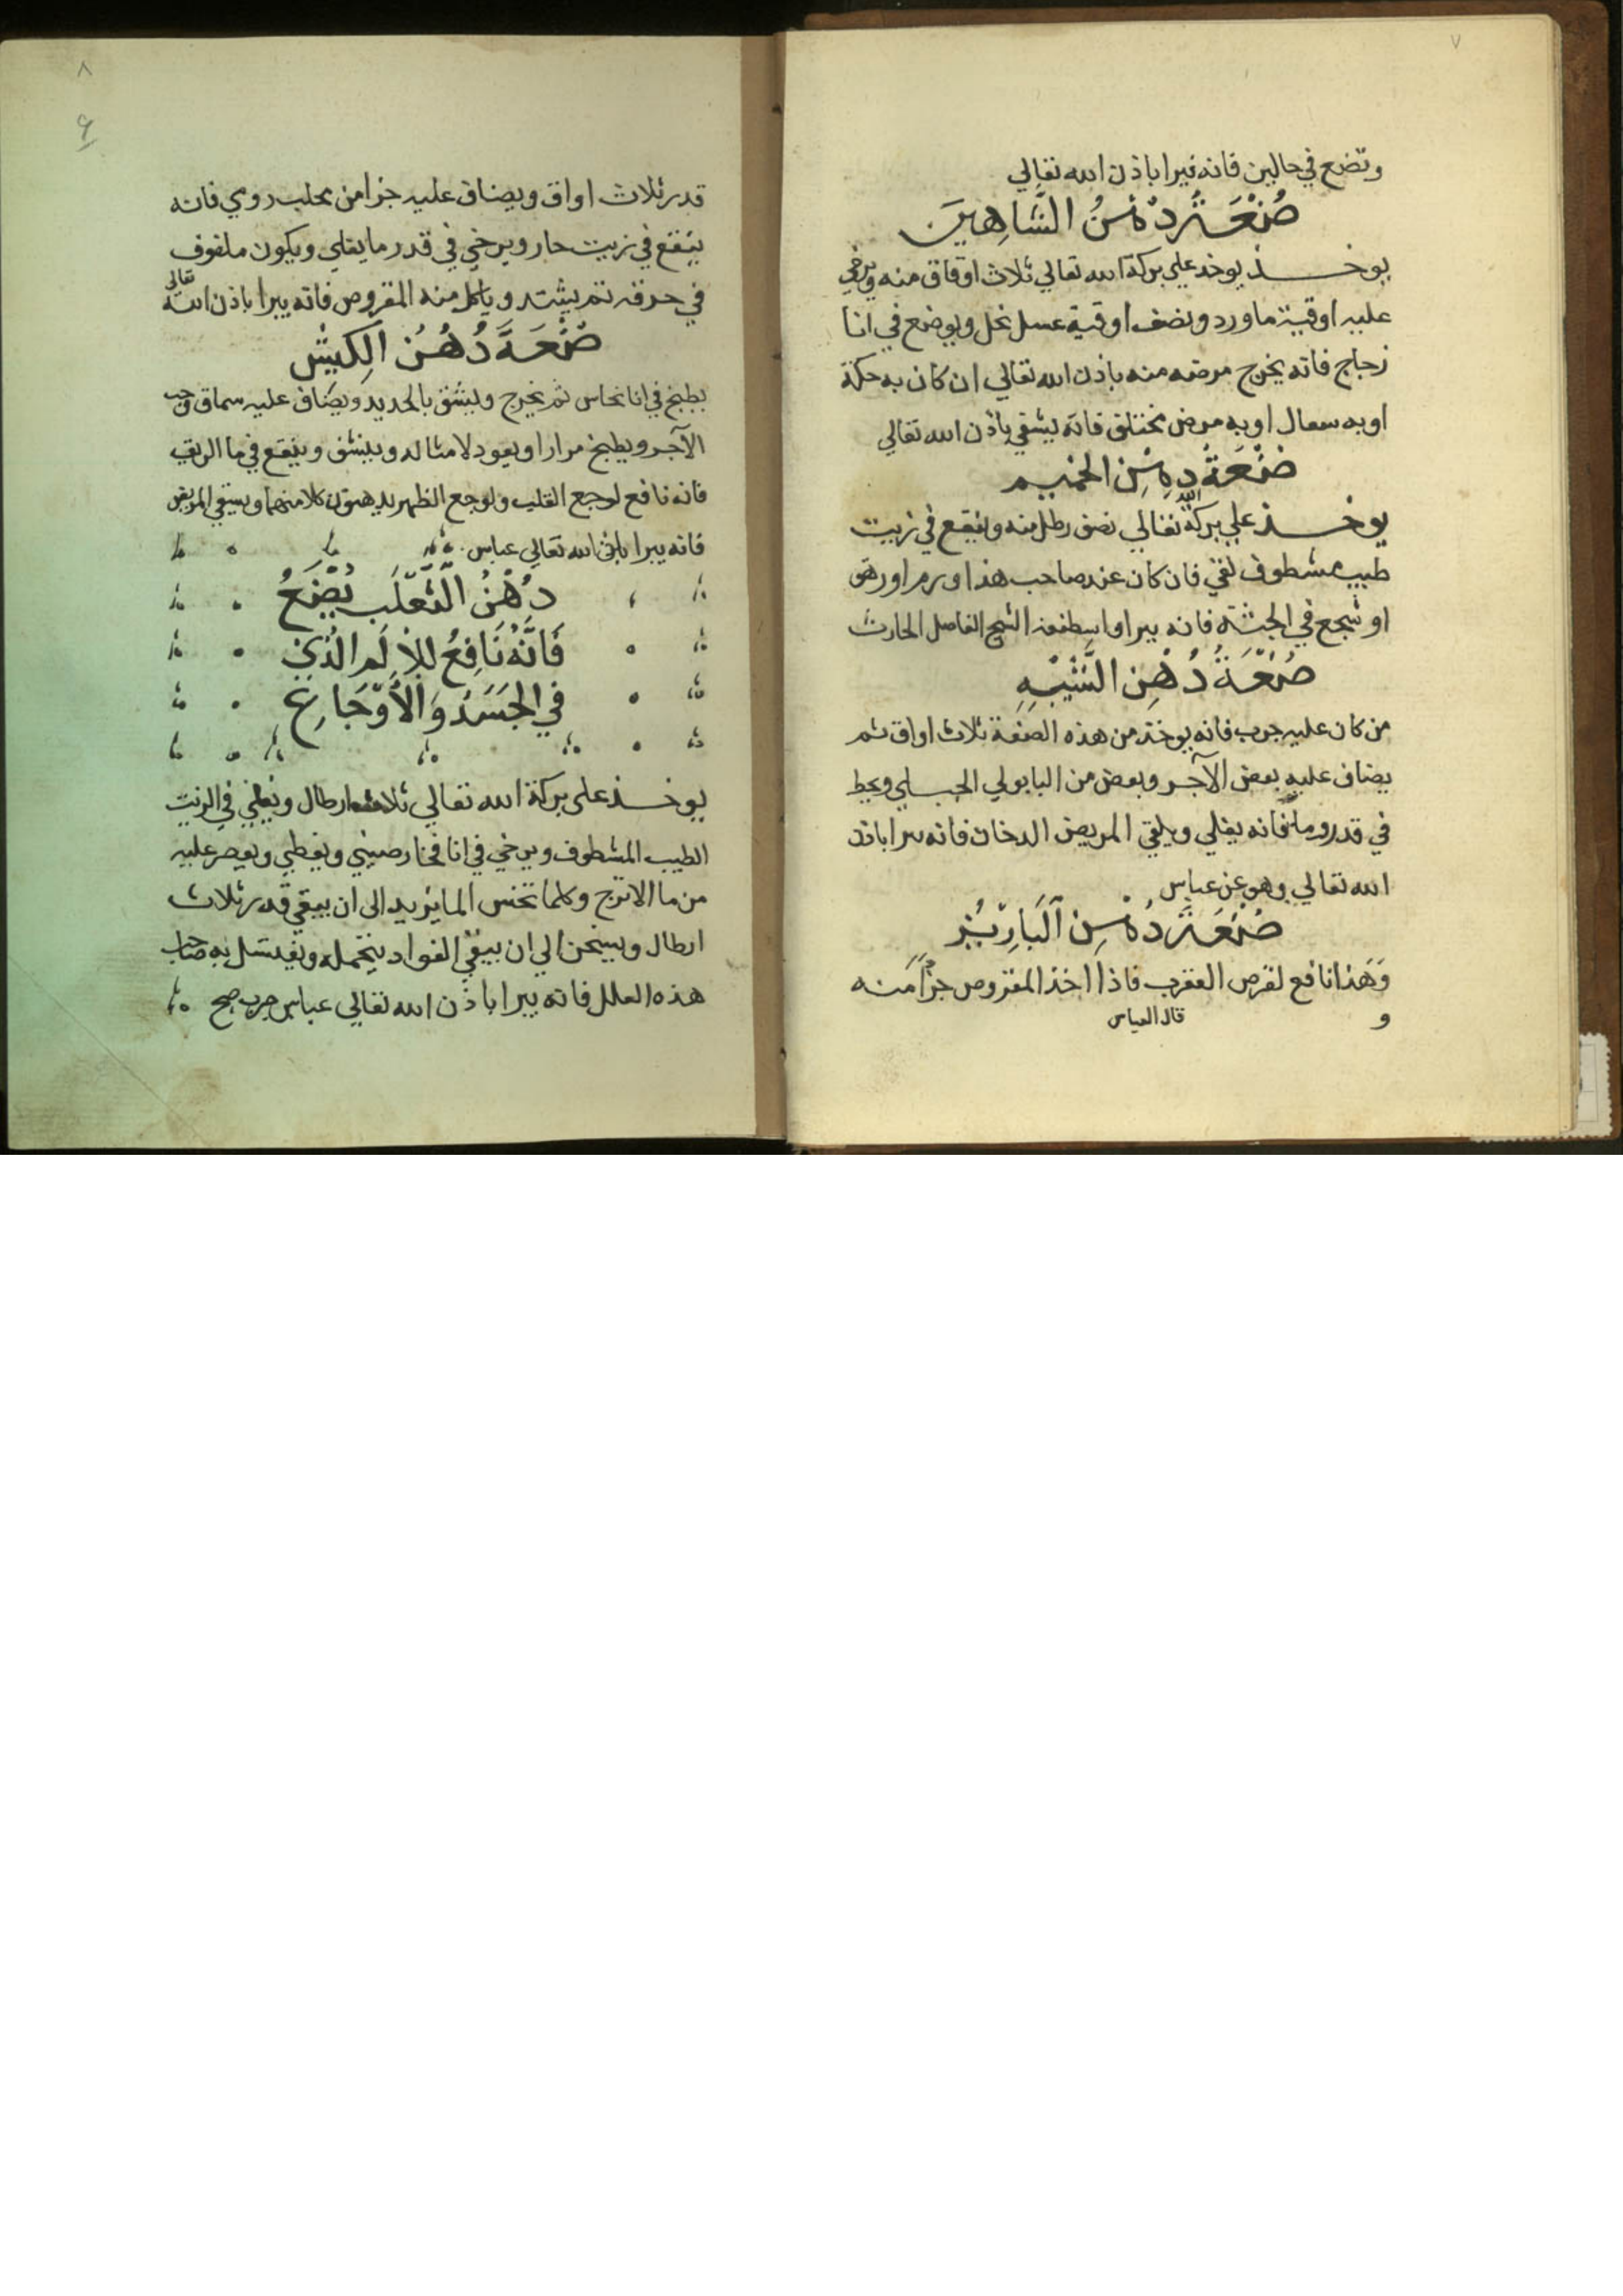 ٧
وتضع في حالين فانه يبرا باذن الله تعالي
صُنْعَةُ دُهْنُ الشَّاهِينَ
يوخـــــذ يوخد علي بركة الله تعالي ثلاث اوقاق منه ويرخي
عليه اوقية ماورد ونصف اوقية عسل نحل ويوضع في انا
زجاج فانه يخرج مرضه منه باذن الله تعالي ان كان به حكة
او به سعال او به مرض مختلق فانه يشفي باذن الله تعالي
صُنْعَةُ دهْنِ
يوخـــــذ علي بركة الله تعالي نصف رطل منه وينقع في زيت
طيب مشطوف نقي فان كان عند صاحب هذا ورم او
او شجع في الجثة فانه يبرا الشيخ الفاضل الحارث
صُنْعَةُ دُهْنِ
من كان عليه جرب فانه يوخذ من هذه الصنعة ثلاث اواق ثم
يضاف عليه بعض الآجر وبعض من البابولي الجبـلي ويحط
في قدر وماً فانه يغلي ويلقي المريض الدخان فانه يبرا باذن
الله تعالي وهو عن عباس
صُنْعَةُ دُهْنِ
وَهَذا نافع لقرص العقرب فاذا اخذ المقروص جزاً منه
و قال العباس
٨
قدر ثلاث اواق ويضاف عليه جزا من محلب روي فانه
ينقع في زيت حار ويرخي في قدر ما يغلي ويكون ملفوف
في خرقه ثم وياكل منه المقروص فانه يبرا باذن الله تعالي
صُنْعَةُ دُهْنُ الكِبِيْشِ
يطبخ في انا نحاس ثم يخرج وينشف بالحديد ويضاف عليه سماق
الآجر ويطبخ مرارا ويعود لامثاله وينشف وينقع في ما
فانه نافع لوجع القلب ولوجع الظهر يدهنون كلا منهما ويسقي المريض
فانه يبرا باذن الله تعالي عباس
دُهْنُ الثَّعْلَبِ يُصْنَعُ
فَاِنَّهُ نَافِعُ لِلْاِلَمِ الَّذِي
فِي الجَسَدِ وَالأَوْجَاعِ
يوخـــــذ علي بركة الله تعالي ثلاثة ارطال ويغلي في الزيت
الطيب المشطوف ويرخي في انا فخار صيني ويغطي ويعصر عليه
من ما الاترج وكلما نخس الما يزيد الى ان يبقي قدر ثلاث
ارطال ويسخن الي ان يبقي ويغتسل به صاحب
هذه العلل فانه يبرا باذن الله تعالي عباس جرب صح